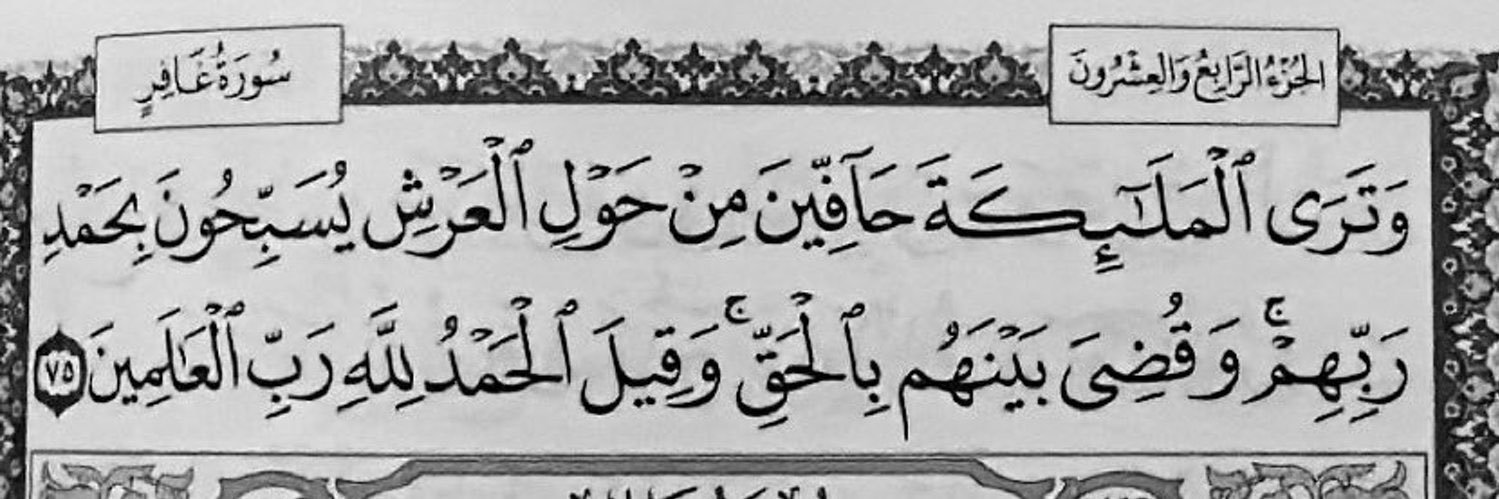 الجُزْءُ الرَّابِعُ وَالعِشْرُونَ
سُورَةُ غَافِرٍ
وَتَرَى ٱلْمَلَٰٓئِكَةَ حَآفِّينَ مِنْ حَوْلِ ٱلْعَرْشِ يُسَبِّحُونَ بِحَمْدِ
رَبِّهِمْۚ وَقُضِىَ بَيْنَهُم بِٱلْحَقِّۚ وَقِيلَ ٱلْحَمْدُ لِلَّهِ رَبِّ ٱلْعَٰلَمِينَ ٧٥